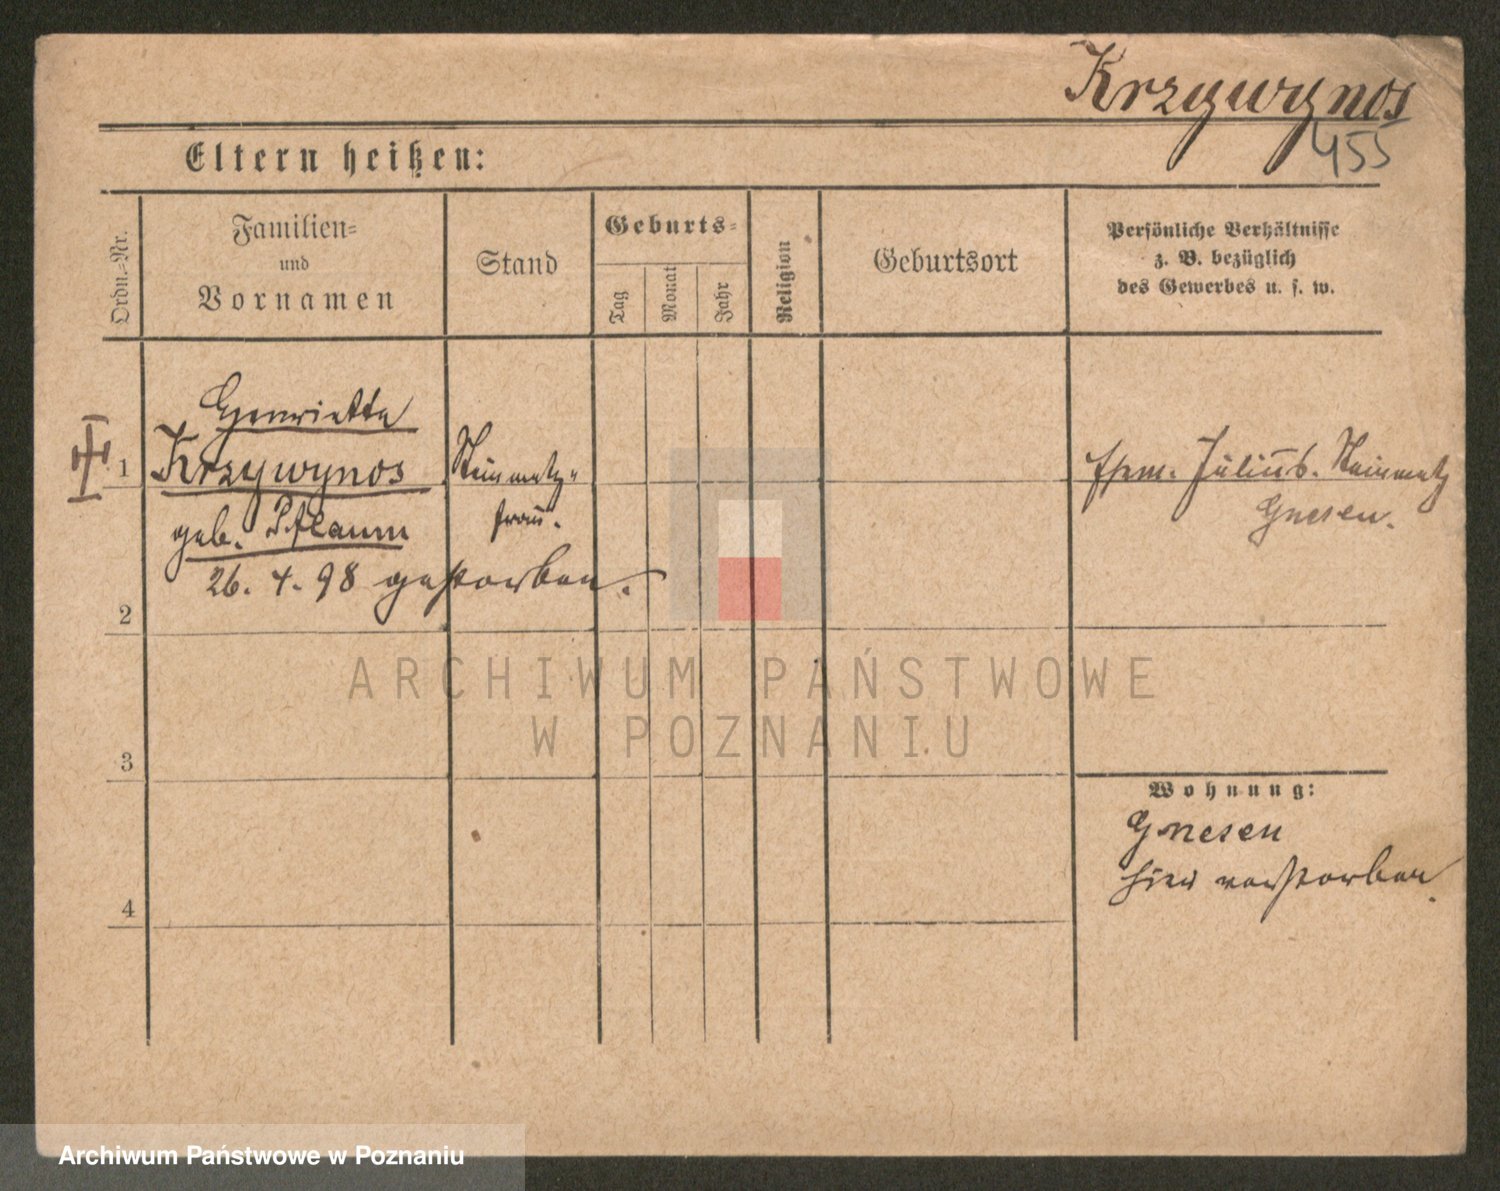 Krzywynos
455
Eltern heißen:
Ordn.-Nr.
Familien-
und
Vornamen
Stand
Geburts-
Tag
Monat
Jahr
Religion
Geburtsort
Persönliche Verhältnisse
z. B. bezüglich
des Gewerbes u. s. w.
1
Henriette
Krzywynos
geb. Pflaum
26. 4. 98 gestorben.
Steinmetz-
frau.
Ehem. Julius. Steinmetz
Gnesen.
2
3
4
Wohnung:
Gnesen
hier verstorben.
ARCHIWUM PAŃSTWOWE
W POZNANIU
Archiwum Państwowe w Poznaniu